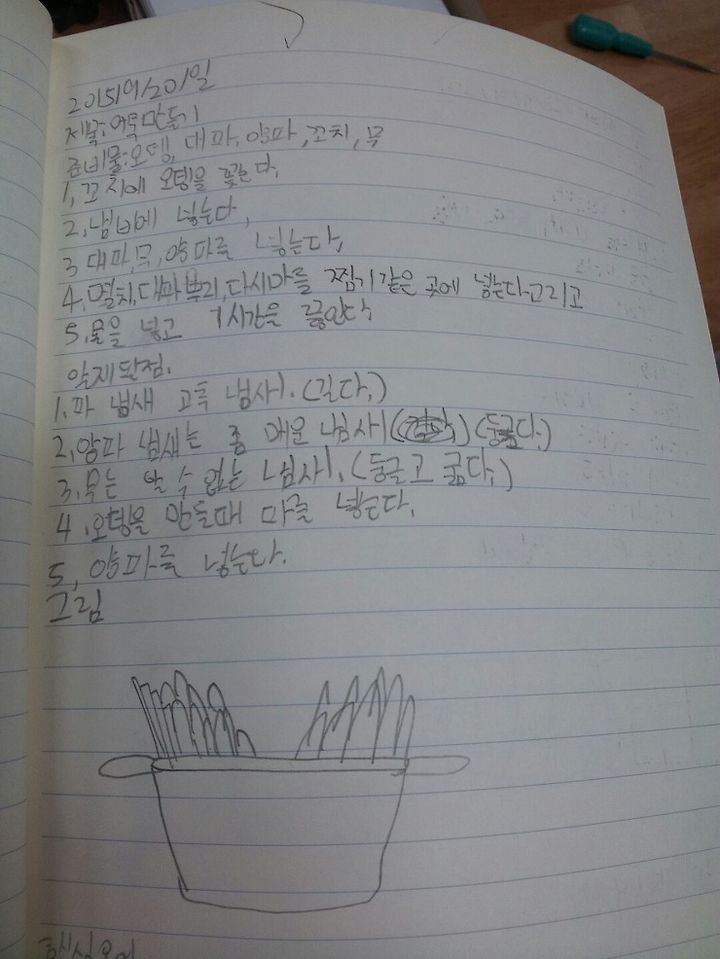 2015/9/201일
제목:어묵만들기
준비물:오뎅, 대파, 양파, 꼬치, 무
1, 꼬치에 오뎅을 꽂는다,
2, 냄비에 넣는다,
3 대파,무,양파를 넣는다,
4, 멸치,대파뿌리,다시마를 찜기같은 곳에 넣는다그리고
5, 물을 넣고 1시간을 끓인다,
알게된점.
1. 파 냄새 고특 냄사1. (길다,)
2, 양파 냄새는 좀 매운 냄사1 (둥굴다,)
3, 무는 알 수 없는 냄사1, (둥글고 굵다,)
4. 오뎅을 만들때 마를 넣는다,
5, 양파를 넣는다.
그림